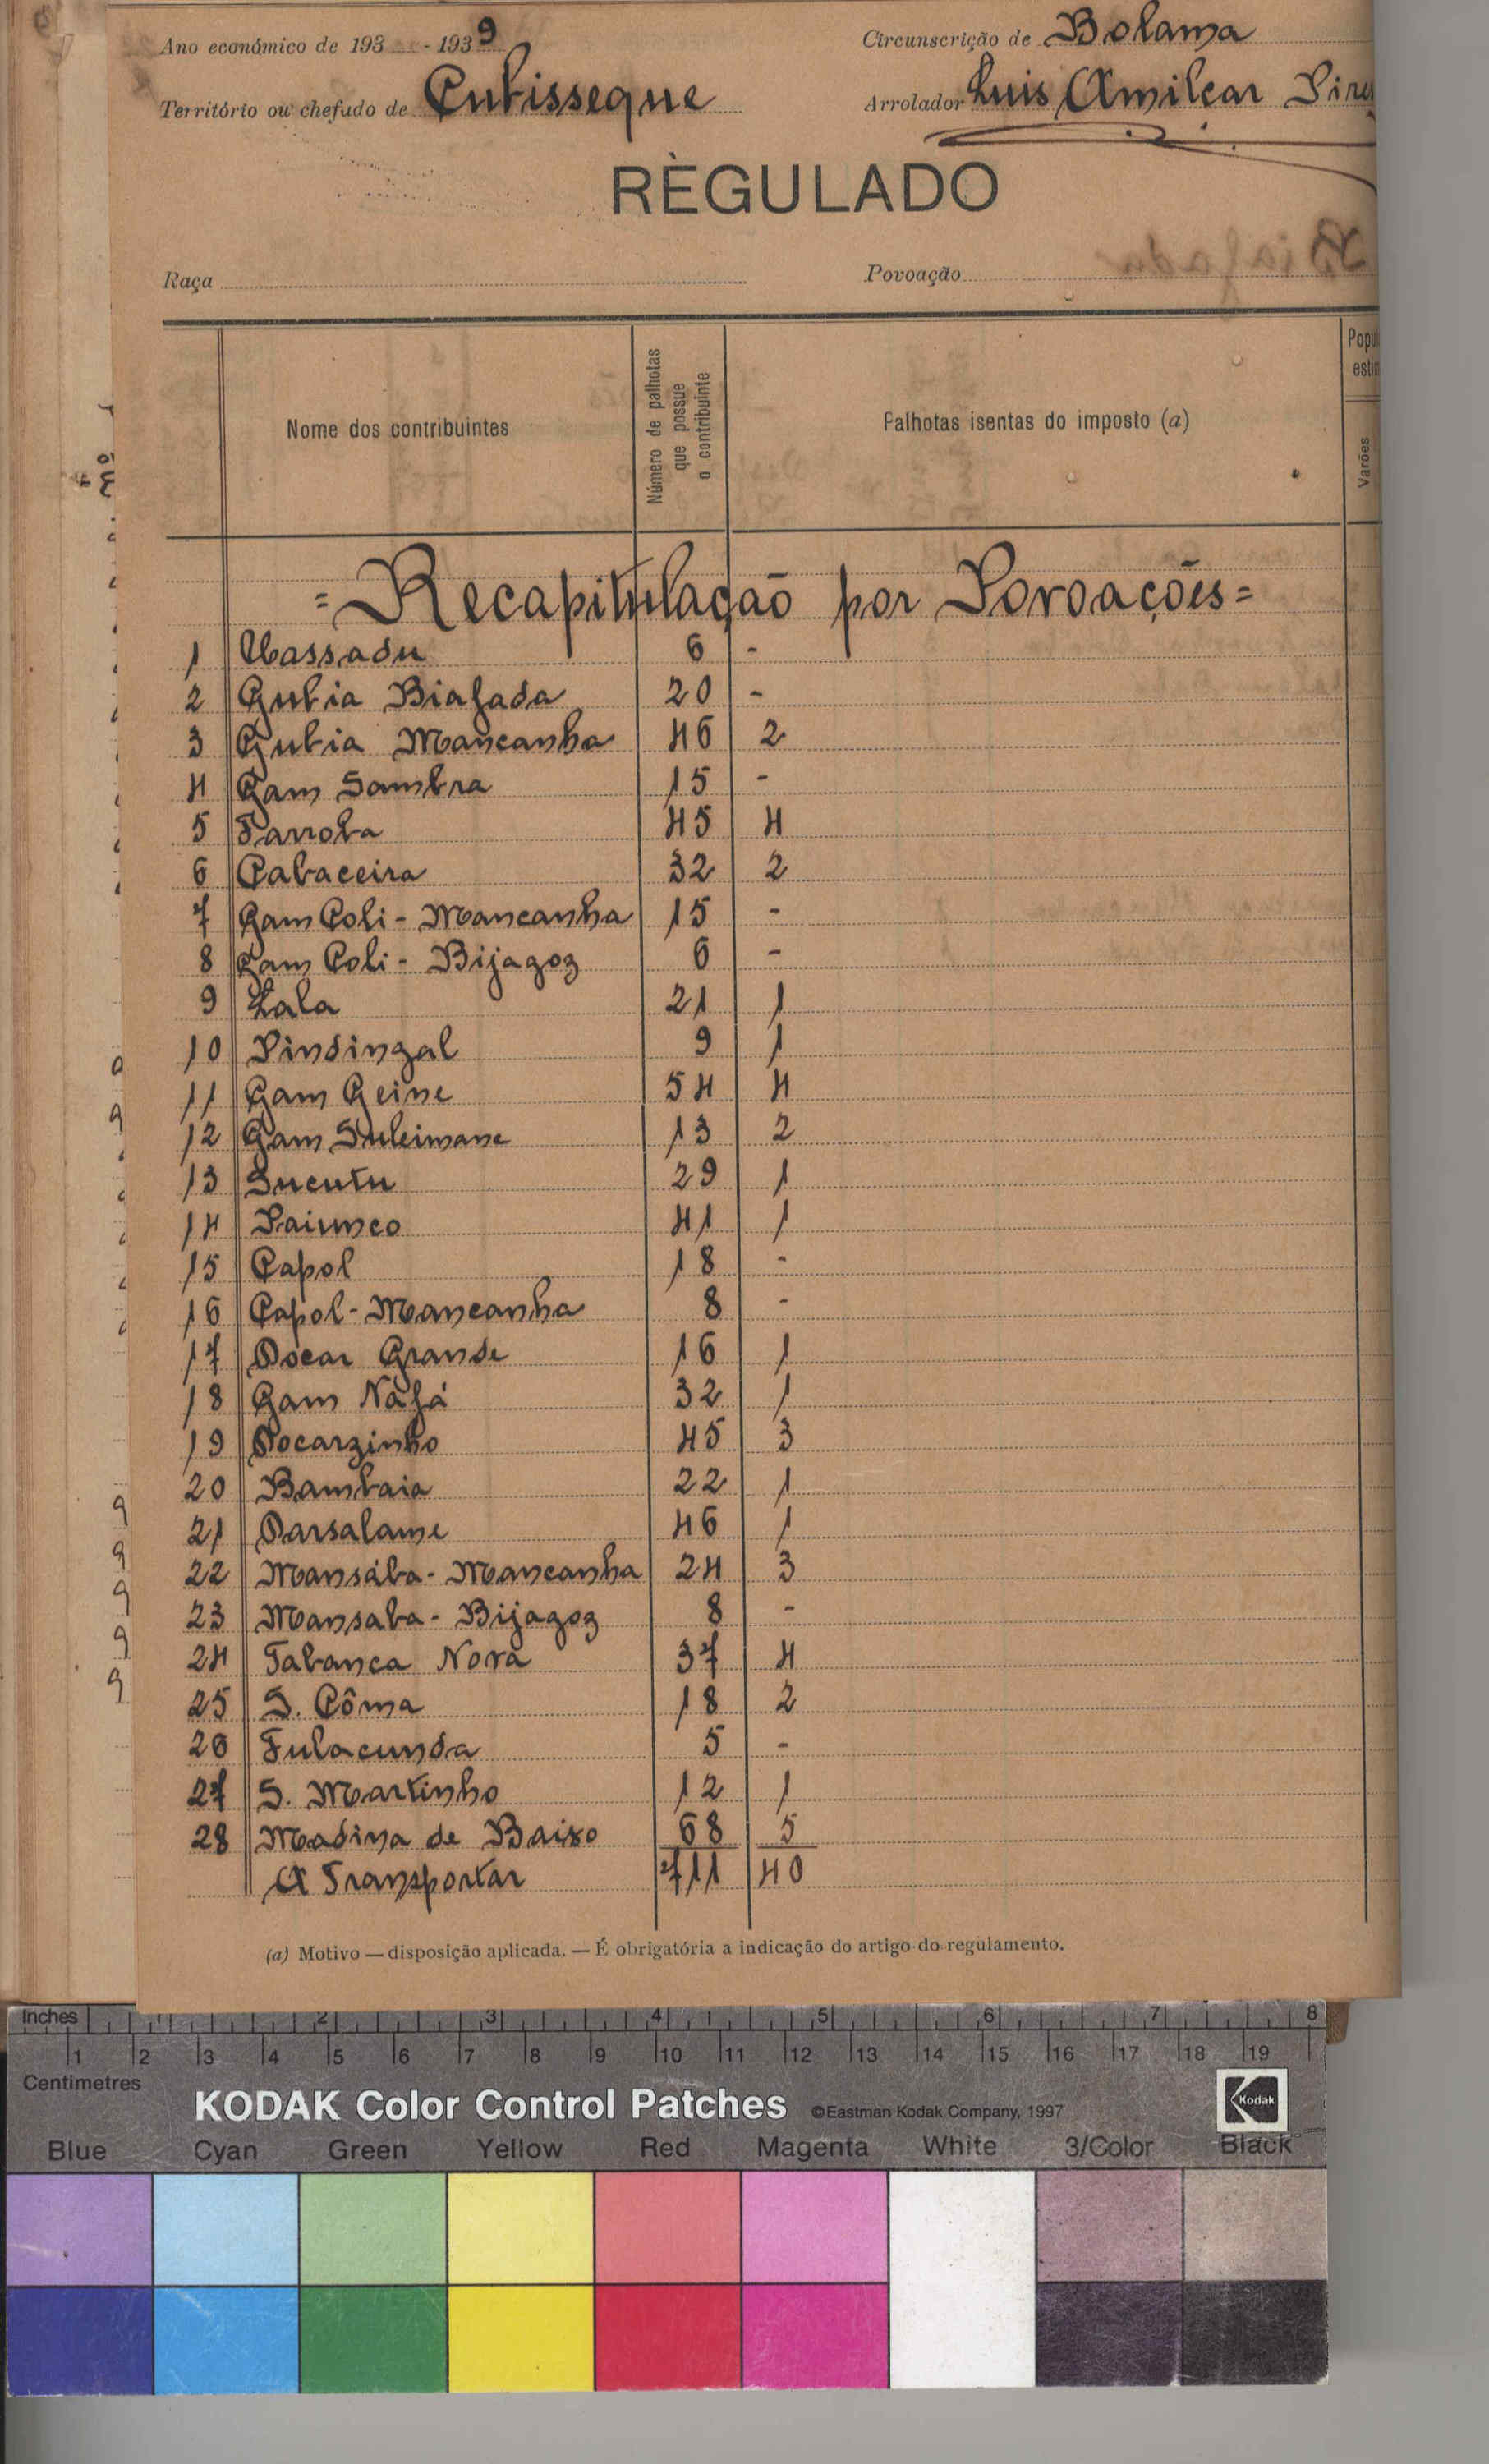 Ano económico de 193 - 1939
Circunscrição de Bolama
Território ou chefado de Cubisseque
Arrolador Luis Amilcar Pires
RÈGULADO
Raça
Povoação
Nome dos contribuintes
Número de palhotas que possue o contribuinte
Palhotas isentas do imposto (a)
Popul
estim
Varões
=Recapitulação por Povoações=
1 Uassadu 6 -
2 Gubia Biafada 20 -
3 Gubia Mancanha 46 2
4 Gam Sambra 15 -
5 Farroba 45 4
6 Cabaceira 32 2
7 Gam Coli - Mancanha 15 -
8 Gam Coli - Bijagoz 6 -
9 Lala 21 1
10 Pindingal 9 1
11 Gam Geine 54 4
12 Gam Suleimane 13 2
13 Sucutu 29 1
14 Paiunco 41 1
15 Capol 18 -
16 Capol - Mancanha 8 -
17 Docar Grande 16 1
18 Gam Náfá 32 1
19 Docarzinho 45 3
20 Bambaia 22 1
21 Darsalame 46 1
22 Mansába - Mancanha 24 3
23 Mansaba - Bijagoz 8 -
24 Tabanca Nova 37 4
25 S. Côma 18 2
26 Fulacunda 5 -
27 S. Martinho 12 1
28 Madina de Baixo 68 5
A Transportar 711 40
(a) Motivo — disposição aplicada. — É obrigatória a indicação do artigo do regulamento.
Inches 1 2 3 4 5 6 7 8
1 2 3 4 5 6 7 8 9 10 11 12 13 14 15 16 17 18 19
Centimetres
KODAK Color Control Patches ©Eastman Kodak Company, 1997 Kodak
Blue Cyan Green Yellow Red Magenta White 3/Color Black